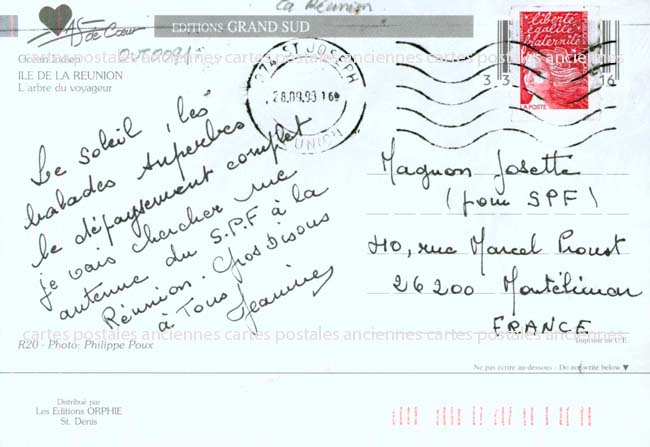 La Réunion
AS de Cœur
EDITIONS GRAND SUD
Océan Indien
ILE DE LA REUNION
L'arbre du voyageur
974 ST JOSEPH
28.09.98 16
REUNION
liberté
égalité
fraternité
LA POSTE
33
16
Le soleil, les
balades superbes
le dépaysement complet
je vais chercher une
antenne du S.P.F à la
Réunion. Gros bisous
à Tous
Jeannine
Magnon Josette
(pour SPF)
40, rue Marcel Proust
26200 Montélimar
FRANCE
cartes postales anciennes cartes postales anciennes cartes postales anciennes
cartes postales anciennes cartes postales anciennes cartes postales anciennes
R20 - Photo: Philippe Poux
Imprimé en U.E.
Ne pas écrire au-dessous - Do not write below ▼
Distribué par
Les Editions ORPHIE
St. Denis